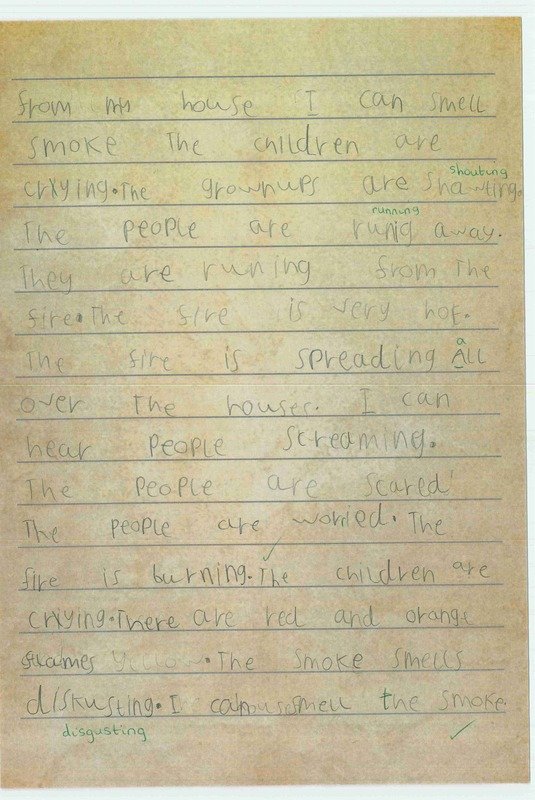 from my house I can smell
smoke The children are
crying. The grownups are shawting.
shouting
running
The people are runig away.
They are runing from The
fire. The fire is very hot.
The fire is spreading all
over The houses. I can
hear people screaming.
The people are scared
The people are worried. The
fire is burning. The children are
crying. There are red and orange
flames yellow. The smoke smells
diskusting. I smell the smoke.
disgusting